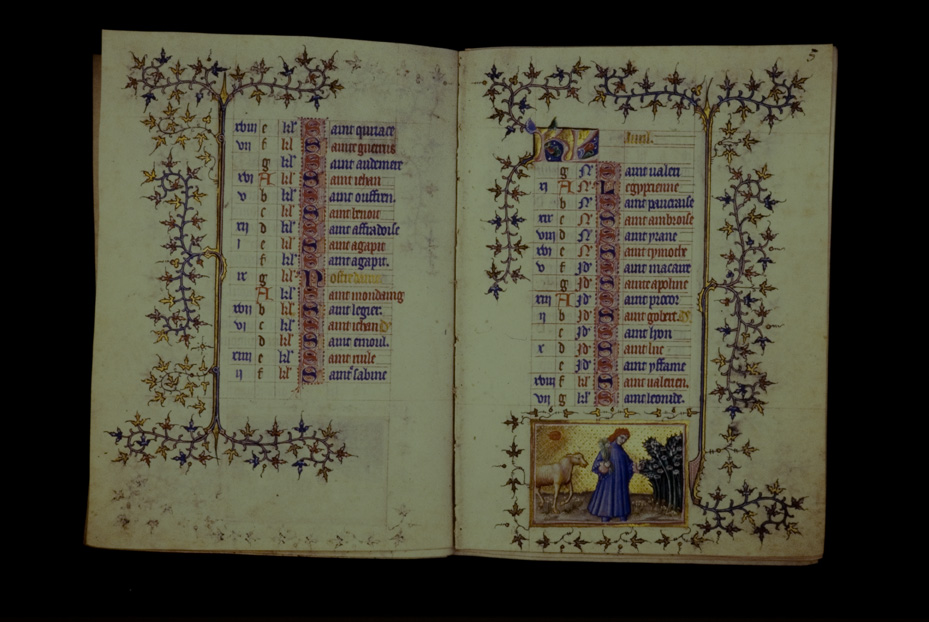 xviii e kl' Saint quiriace
vii f kl' Sainte guerins
g kl' Saint andomere
xvi A kl' Saint iehan
v b kl' Saint
c kl' Saint benoit
xii d kl' Saint affradoise
i e kl' Saint agapit
f kl' Saint agapit.
ix g kl' Nostre dame
A kl' Saint mondaing
xvii b kl' Saint legier.
vi c kl' Saint iehan
d kl' Saint ernoul.
xiiii e kl' Saint rule
ii f kl' Sainte sabine
3
KL Auril.
g Saint valeri
xi A N' Legypcienne
b N' Saint pancrasse
xix c N' Saint ambroise
viii d N' Saint yrane
xvi e N' Saint tymothe
v f Id' Saint macaire
g Id' Sainte apoline
xiii A Id' Saint precor
ii b Id' Saint gobert.
c Id' Saint lyon
x d Id' Saint luc
e Id' Saint
xviii f kl' Saint valentin.
vii g kl' Saint leonide.